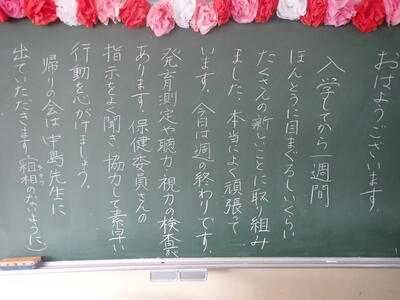 おはようございます。
入学してから一週間
ほんとうに目まぐるしいくらい
たくさんの新しいことに取り組み
ました。本当によく頑張って
います。今日は週の終わりです。
発育測定や聴力・視力の検査が
あります。保健委員さんの
指示をよく聞き、協力して素早い
行動を心がけましょう。
帰りの会は中島先生に
出ていただきます(粗相のないように)